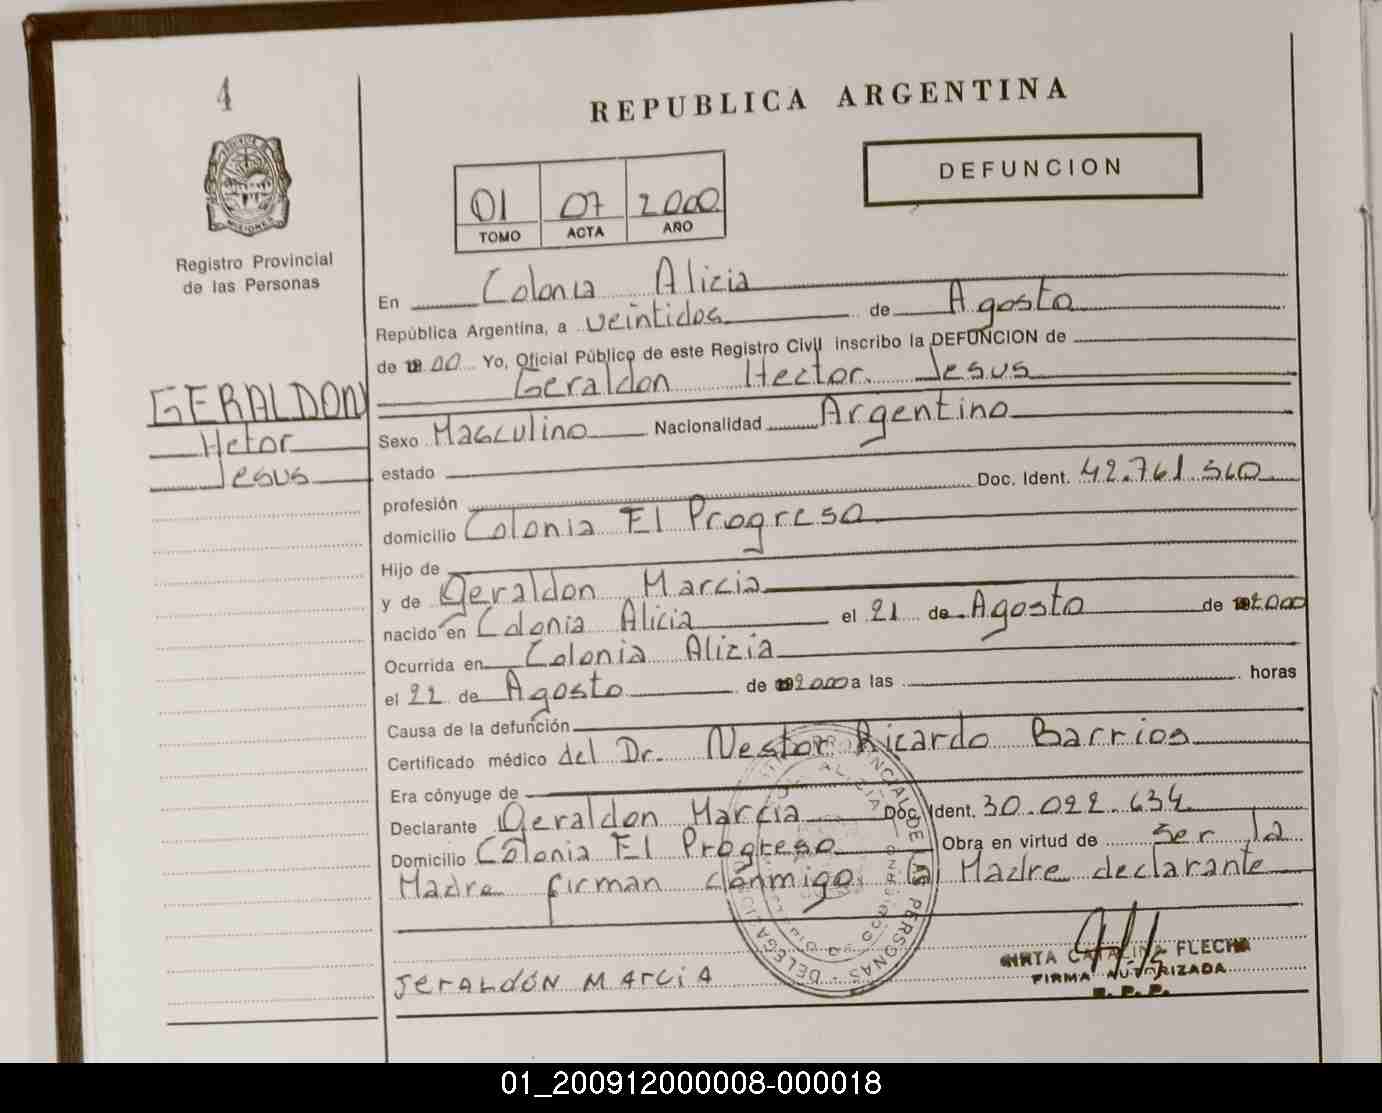 4
REPUBLICA ARGENTINA
DEFUNCION
01 07 2000
TOMO ACTA AÑO
Registro Provincial
de las Personas
En Colonia Alicia
República Argentina, a veintidos de Agosto
de 00 Yo, Oficial Público de este Registro Civil inscribo la DEFUNCION de
Geraldon Hector Jesus
GERALDON
Hetor
Jesus
Sexo Masculino Nacionalidad Argentino
estado
profesión Doc. Ident. 42.761.360
domicilio Colonia El Progreso
Hijo de
y de Geraldon Marcia
nacido en Colonia Alicia el 21 de Agosto de 2000
Ocurrida en Colonia Alicia
el 22 de Agosto de 2000 a las horas
Causa de la defunción
Certificado médico del Dr. Nestor Ricardo Barrios
Era cónyuge de
Declarante Geraldon Marcia Doc. Ident. 30.022.634
Domicilio Colonia El Progreso Obra en virtud de ser la
Madre firman conmigo la Madre declarante
JERALDÓN MARCIA
MIRTA CATALINA FLECHA
FIRMA AUTORIZADA
R. P. P.
01_200912000008-000018